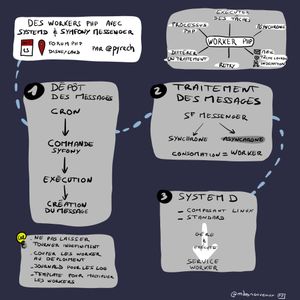 DES WORKERS PHP AVEC
SYSTEMD & SYMFONY MESSENGER
13
FORUM PHP
DISNEYLAND
PAR @pyrech
EXÉCUTER
DES TÂCHES
PROCESSUS
PHP
ASYNCHRONE
WORKER PHP
DIFFÉRER
UN TRAITEMENT
RETRY
MAIL
INDEXATION
1 DÉPÔT
DES MESSAGES
CRON
COMMANDE
SYFONY
EXÉCUTION
CRÉATION
DU MESSAGE
2 TRAITEMENT
DES MESSAGES
SF MESSENGER
SYNCHRONE
ASYNCHRONE
CONSOMATION = WORKER
3 SYSTEM D
_ COMPOSANT LINUX
_ STANDARD
GÈRE
&
EXÉCUTE
SERVICE
WORKER
_ NE PAS LAISSER
TOURNER INDÉFINIMENT
_ COUPER LES WORKER
AU DÉPLOIEMENT
_ JOURNALD POUR LES LOG
_ TEMPLATE POUR MULTIPLIER
LES WORKERS